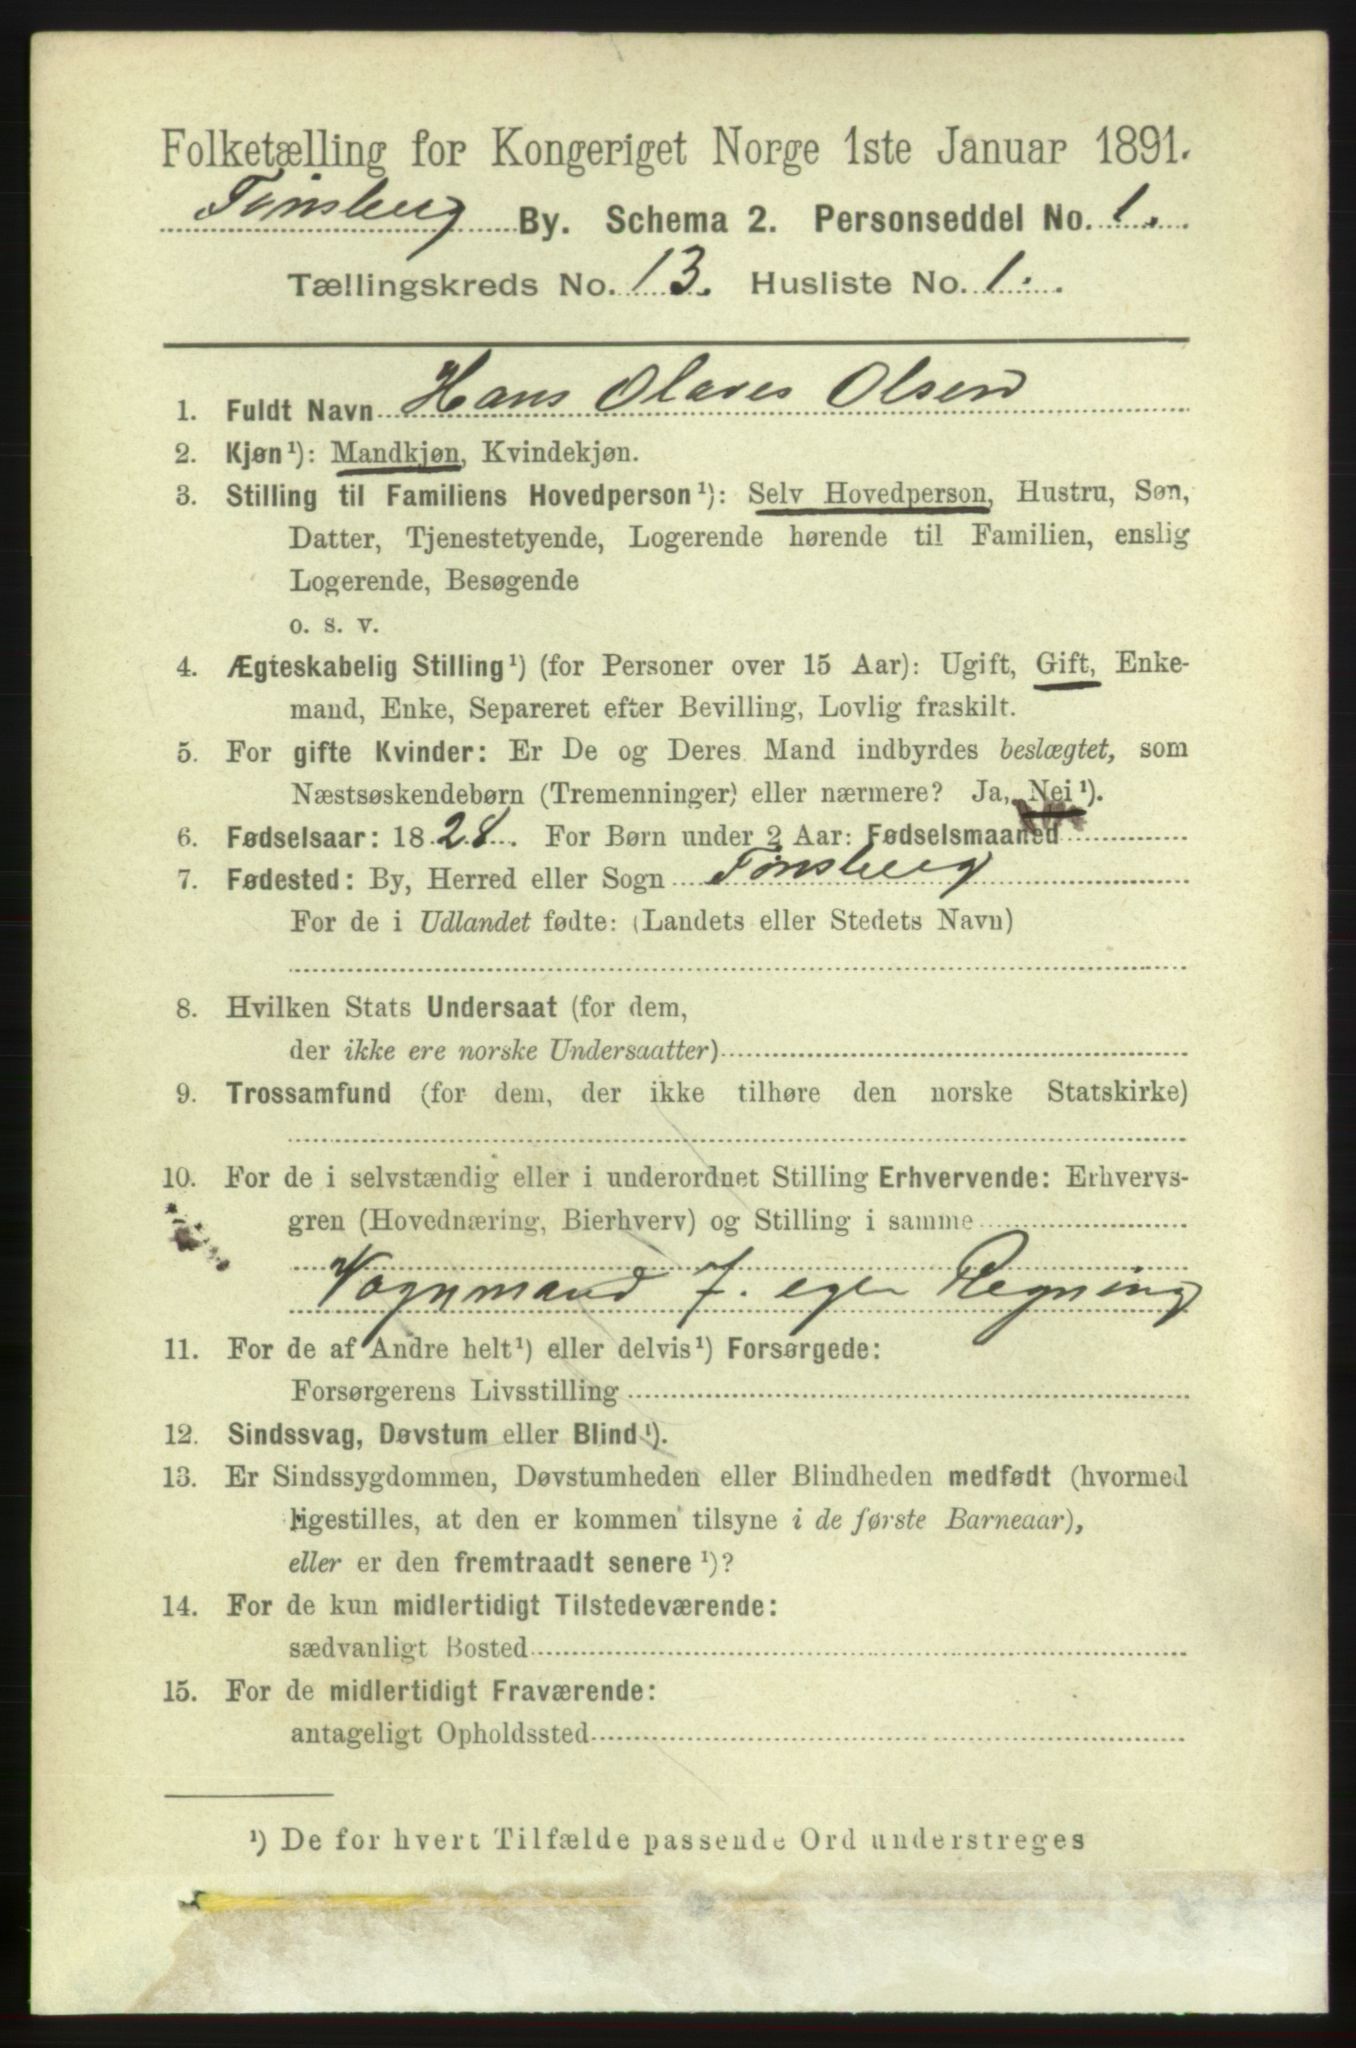 Folketælling for Kongeriget Norge 1ste Januar 1891.
Tønsberg By. Schema 2. Personseddel No. 1.
Tællingskreds No. 13. Husliste No. 1.
1. Fuldt Navn Hans Olaves Olsen
2. Kjøn¹): Mandkjøn, Kvindekjøn.
3. Stilling til Familiens Hovedperson¹): Selv Hovedperson, Hustru, Søn,
Datter, Tjenestetyende, Logerende hørende til Familien, enslig
Logerende, Besøgende
o. s. v.
4. Ægteskabelig Stilling¹) (for Personer over 15 Aar): Ugift, Gift, Enke-
mand, Enke, Separeret efter Bevilling, Lovlig fraskilt.
5. For gifte Kvinder: Er De og Deres Mand indbyrdes beslægtet, som
Næstsøskendebørn (Tremenninger) eller nærmere? Ja, Nei¹).
6. Fødselsaar: 1828. For Børn under 2 Aar: Fødselsmaaned
7. Fødested: By, Herred eller Sogn Tønsberg
For de i Udlandet fødte: (Landets eller Stedets Navn)
8. Hvilken Stats Undersaat (for dem,
der ikke ere norske Undersaatter)
9. Trossamfund (for dem, der ikke tilhøre den norske Statskirke)
10. For de i selvstændig eller i underordnet Stilling Erhvervende: Erhvervs-
gren (Hovednæring, Bierhverv) og Stilling i samme
Vognmand f. egen Regning
11. For de af Andre helt¹) eller delvis¹) Forsørgede:
Forsørgerens Livsstilling
12. Sindssvag, Døvstum eller Blind¹).
13. Er Sindssygdommen, Døvstumheden eller Blindheden medfødt (hvormed
ligestilles, at den er kommen tilsyne i de første Barneaar),
eller er den fremtraadt senere¹)?
14. For de kun midlertidigt Tilstedeværende:
sædvanligt Bosted
15. For de midlertidigt Fraværende:
antageligt Opholdssted
¹) De for hvert Tilfælde passende Ord understreges